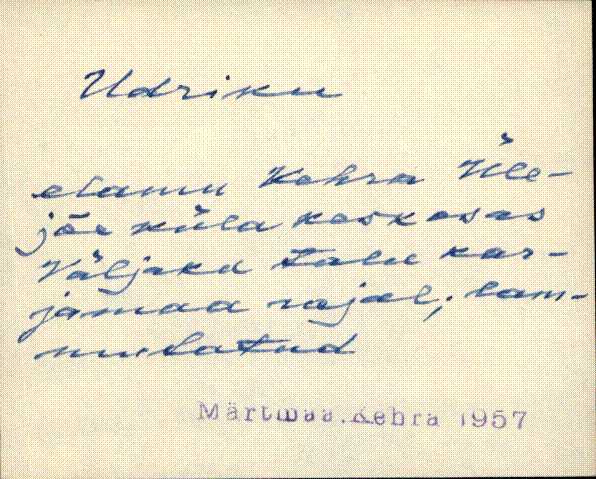 Udriku
elamu Kehra Üle-
jõe küla keskosas
Väljaku talu kar-
jamaa rajal; lam-
mutatud
Märtmaa.Kehra 1957